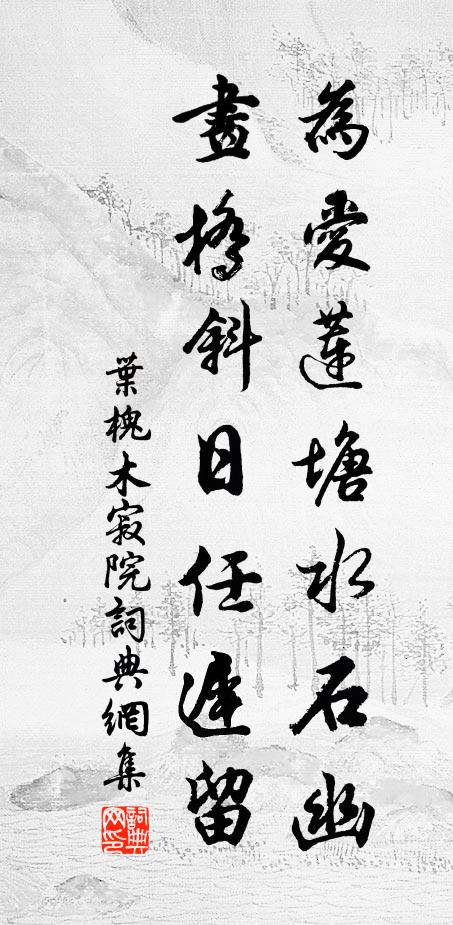 為愛蓮塘水石幽
畫橋斜日任遲留
葉槐木寂院詞典網集
詞典網印